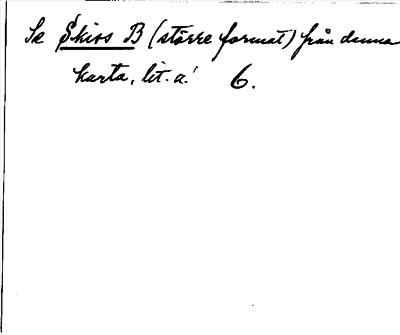 Se Skiss B (större format) från denna
karta, lit. a! 6.